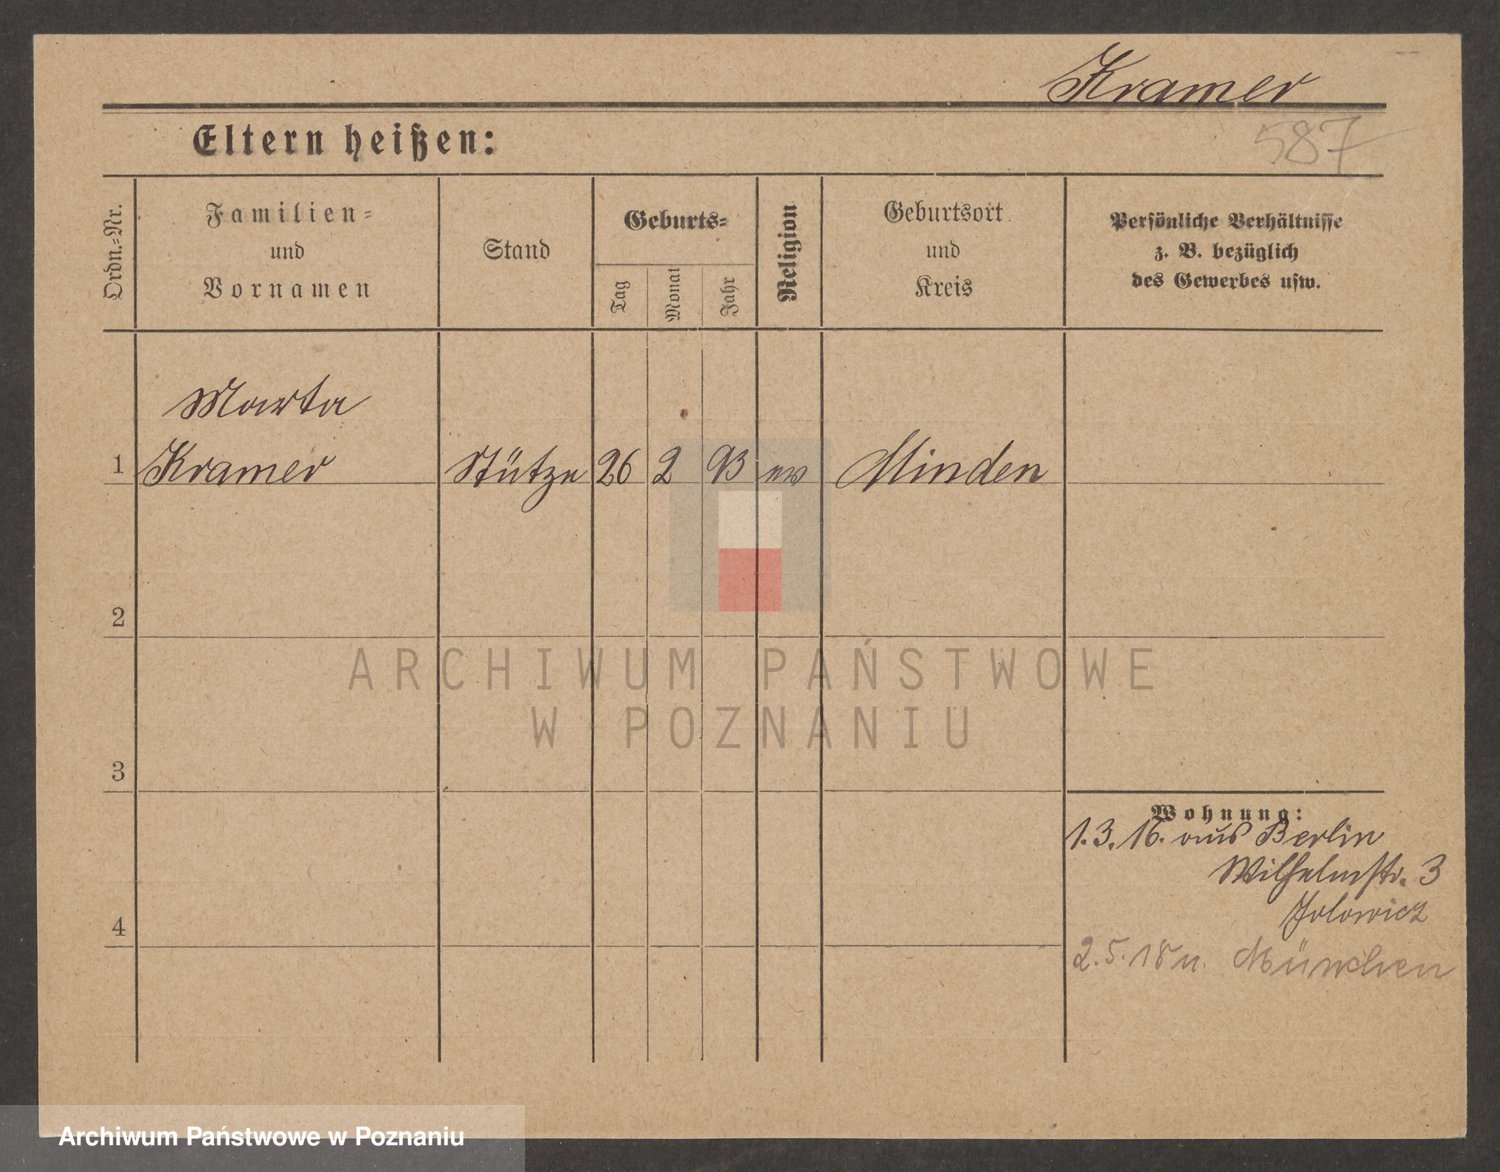 Kramer
587
Eltern heißen:
Ordn.-Nr.
Familien-
und
Vornamen
Stand
Geburts-
Tag
Monat
Jahr
Religion
Geburtsort
und
Kreis
Persönliche Verhältnisse
z. B. bezüglich
des Gewerbes usw.
Marta
1 Kramer Stütze 26 2 93 ev Minden
2
ARCHIWUM PAŃSTWOWE
W POZNANIU
3
Wohnung:
1.3.16. aus Berlin
Wilhelmstr. 3
Jolowicz
4
2.5.18 n. München
Archiwum Państwowe w Poznaniu